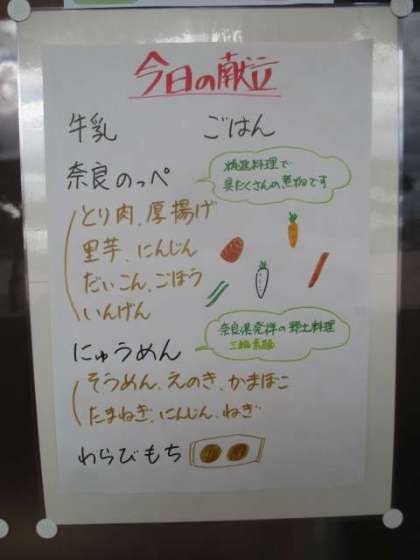 今日の献立
牛乳 ごはん
奈良のっぺ
精進料理で
具たくさんの煮物です
とり肉、厚揚げ
里芋、にんじん
だいこん、ごぼう
いんげん
奈良県発祥の郷土料理
三輪素麺
にゅうめん
そうめん、えのき、かまぼこ
たまねぎ、にんじん、ねぎ
わらびもち